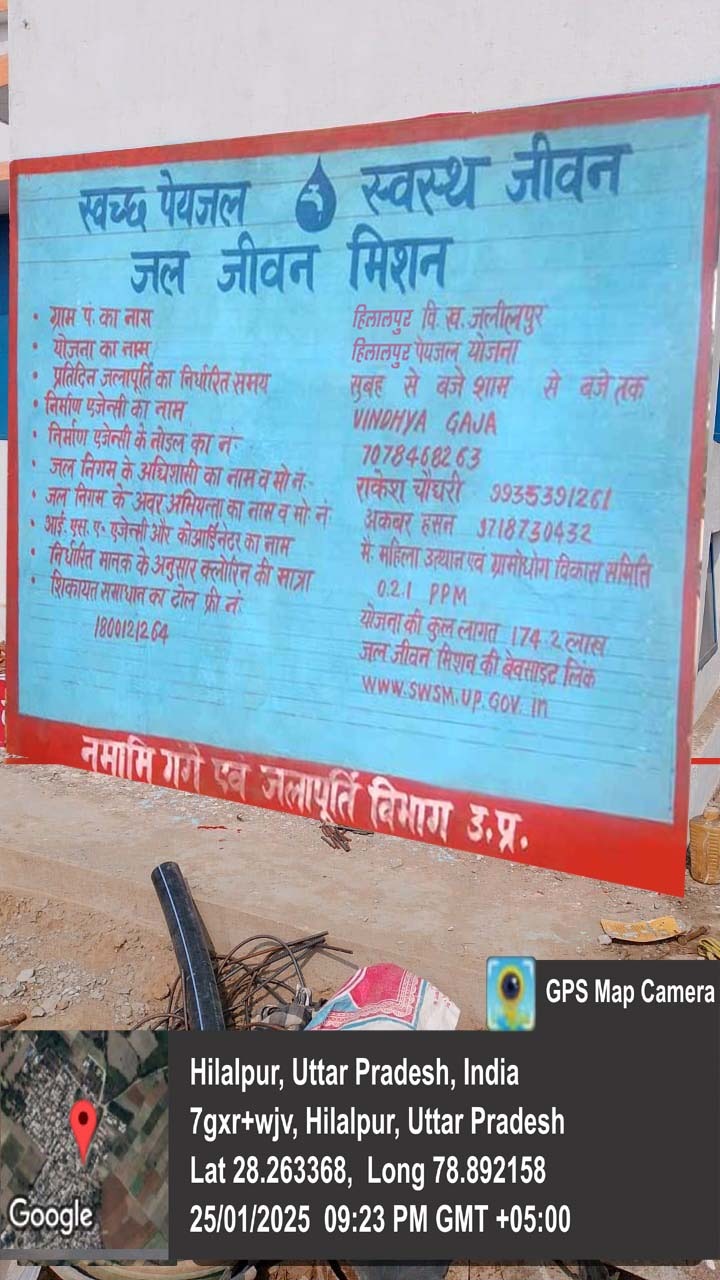 स्वच्छ पेयजल स्वस्थ जीवन
जल जीवन मिशन
• ग्राम पं. का नाम
• योजना का नाम
• प्रतिदिन जलापूर्ति का निर्धारित समय
• निर्माण एजेन्सी का नाम
• निर्माण एजेन्सी के नोडल का नं.-
• जल निगम के अधिशासी का नाम व मो नं.-
• जल निगम के अवर अभियन्ता का नाम व मो. नं.
• आई. एस. ए. एजेन्सी और कोआर्डिनेटर का नाम
• निर्धारित मानक के अनुसार क्लोरिन की मात्रा
• शिकायत समाधान का टोल फ्री नं.
1800121264
हिलालपुर वि. ख. जलीलपुर
हिलालपुर पेयजल योजना
सुबह से बजे शाम से बजे तक
VINDHYA GAJA
7078468263
राकेश चौधरी 9935391261
अकबर हसन 9718730432
मै. महिला उत्थान एवं ग्रामोधोग विकास समिति
0.2.1 PPM
योजना की कुल लागत 174.2 लाख
जल जीवन मिशन की बेवसाइट लिंक
www.swsm.up.gov.in
नमामि गंगे एवं जलापूर्ति विभाग उ.प्र.
GPS Map Camera
Hilalpur, Uttar Pradesh, India
7gxr+wjv, Hilalpur, Uttar Pradesh
Lat 28.263368, Long 78.892158
25/01/2025 09:23 PM GMT +05:00
Google